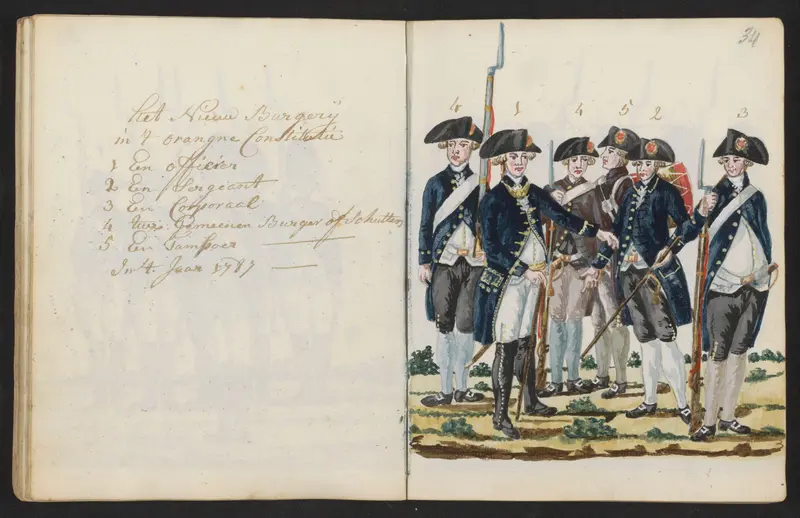 het Nieuw Burgerÿ
in 't orangne Constitutie
1 Een officier
2 Een Sergeant
3 Een Corporaal
4 twee Gemeenen Burger of Schutters
5 Een Tamboer
In 't Jaar 1787
34
4 1 4 5 2 3